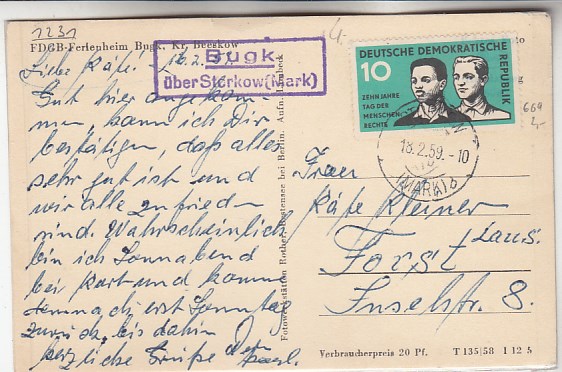 1231
FDGB-Ferienheim Bugk, Kr. Beeskow
Bugk
über Storkow (Mark)
Liebe Käte! 18.2.59
Gut hier angekom-
men, kann ich Dir
bestätigen, daß alles
sehr gut ist und
wir alle zufried-
sind. Wahrscheinlich
bin ich Sonnabend
bei Kurt und komme
demnach erst Sonntag
zurück, bis dahin
herzliche Grüße Dein
4.
DEUTSCHE DEMOKRATISCHE
REPUBLIK
10
ZEHN JAHRE
TAG DER
MENSCHEN-
RECHTE
669
18.2.59.-10
(MARK) b
Frau
Käte Kleiner
Forst Laus.
Inselstr. 8.
Verbraucherpreis 20 Pf. T 135/58 I 12 A